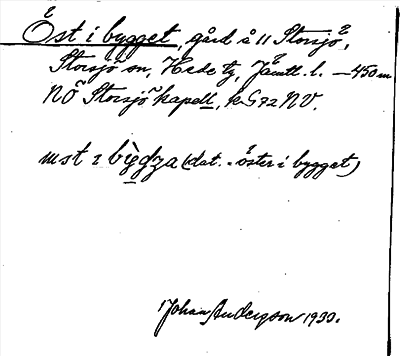 Öst i bygget, gård å 11 Storsjö,
Storsjö sn, Hede tg, Jämtl. l. —450m
NÖ Storsjö kapell, k G 72 NV.
ɯst ɪ bìgdza (dat. "öster i bygget)
Johan Anderson 1930.